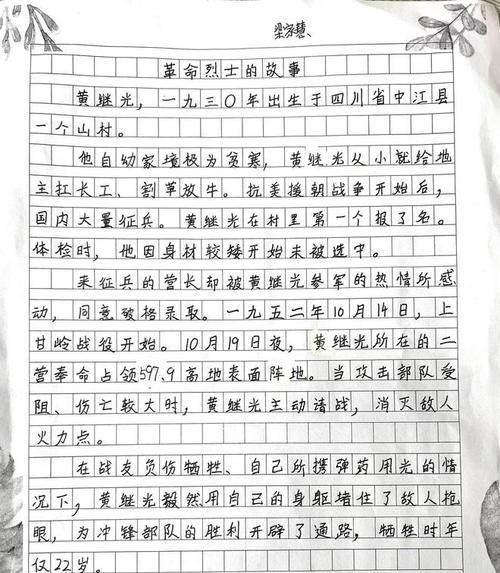 梁家慧
革命烈士的故事
黄继光，一九三〇年出生于四川省中江县
一个山村。
他自幼家境极为贫寒，黄继光从小就给地
主扛长工、割草放牛。抗美援朝战争开始后，
国内大量征兵。黄继光在村里第一个报了名。
体检时，他因身材较矮开始未被选中。
来征兵的营长却被黄继光参军的热情所感
动，同意破格录取。一九五二年10月14日，上
甘岭战役开始。10月19日夜，黄继光所在的二
营奉命占领597.9高地表面阵地。当攻击部队受
阻、伤亡较大时，黄继光主动请战，消灭敌人
火力点。
在战友负伤牺牲、自己所携弹药用光的情
况下，黄继光毅然用自己的身躯堵住了敌人枪
眼，为冲锋部队的胜利开辟了通路，牺牲时年
仅22岁。